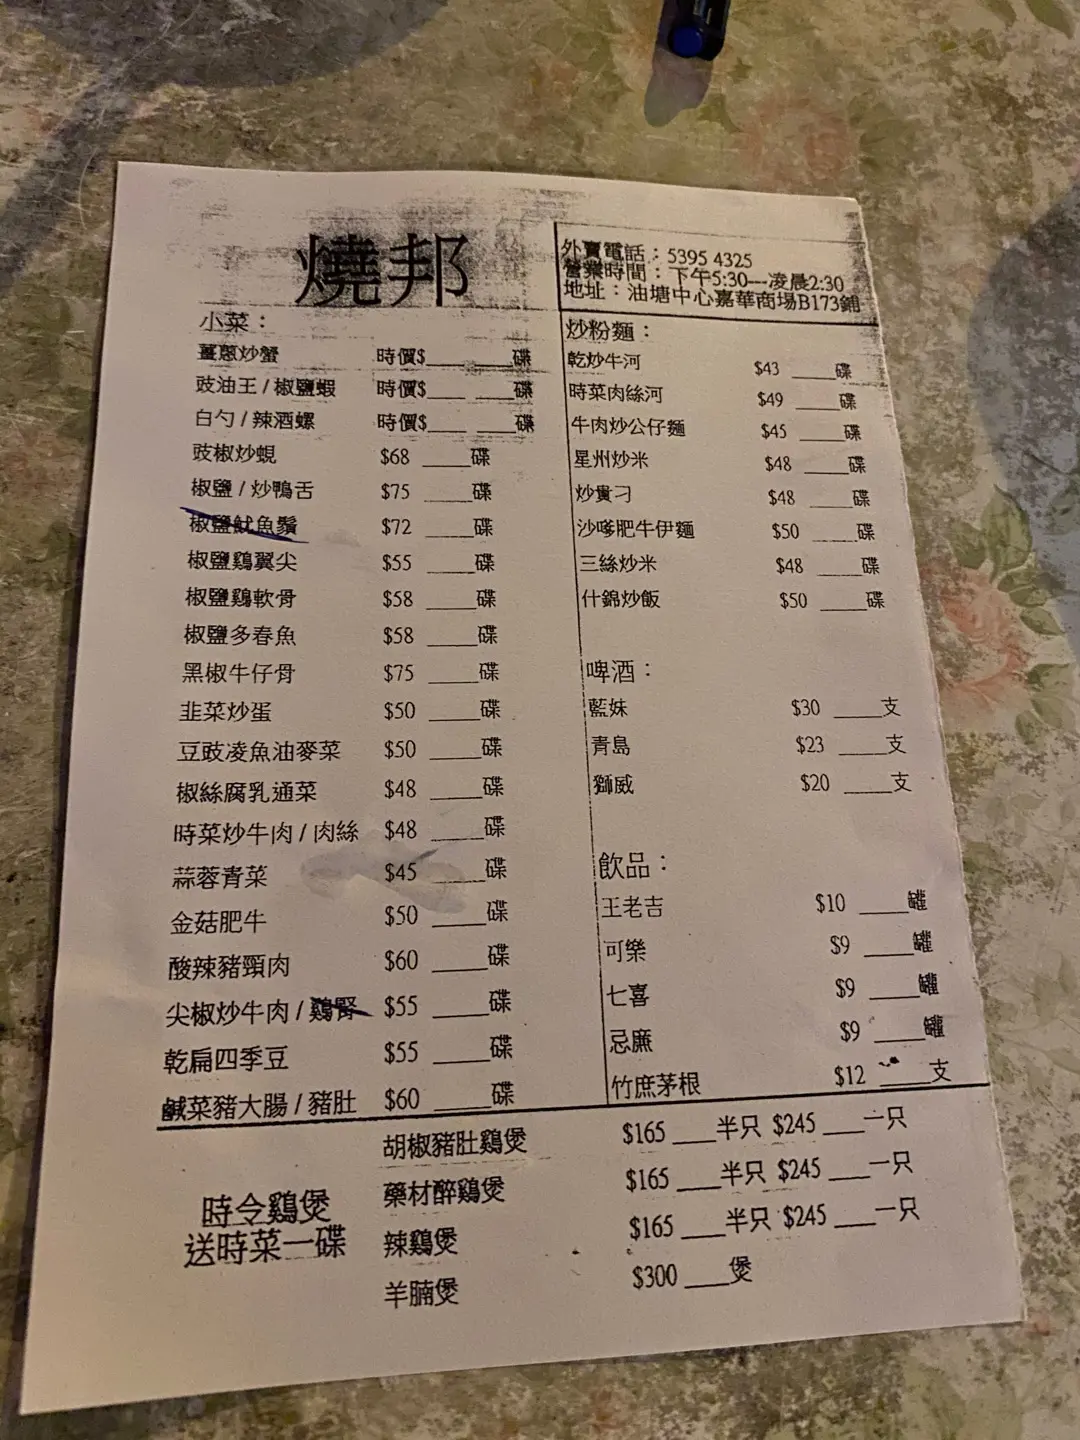 燒邦
外賣電話：5395 4325
營業時間：下午5:30---凌晨2:30
地址：油塘中心嘉華商場B173鋪
小菜：
薑蔥炒蟹 時價$____ ____碟
豉油王 / 椒鹽蝦 時價$____ ____碟
白勺 / 辣酒螺 時價$____ ____碟
豉椒炒蜆 $68 ____碟
椒鹽 / 炒鴨舌 $75 ____碟
椒鹽魷魚鬚 $72 ____碟
椒鹽鷄翼尖 $55 ____碟
椒鹽鷄軟骨 $58 ____碟
椒鹽多春魚 $58 ____碟
黑椒牛仔骨 $75 ____碟
韭菜炒蛋 $50 ____碟
豆豉凌魚油麥菜 $50 ____碟
椒絲腐乳通菜 $48 ____碟
時菜炒牛肉 / 肉絲 $48 ____碟
蒜蓉青菜 $45 ____碟
金菇肥牛 $50 ____碟
酸辣豬頸肉 $60 ____碟
尖椒炒牛肉 / 鷄腎 $55 ____碟
乾扁四季豆 $55 ____碟
鹹菜豬大腸 / 豬肚 $60 ____碟
炒粉麵：
乾炒牛河 $43 ____碟
時菜肉絲河 $49 ____碟
牛肉炒公仔麵 $45 ____碟
星州炒米 $48 ____碟
炒貴刁 $48 ____碟
沙嗲肥牛伊麵 $50 ____碟
三絲炒米 $48 ____碟
什錦炒飯 $50 ____碟
啤酒：
藍妹 $30 ____支
青島 $23 ____支
獅威 $20 ____支
飲品：
王老吉 $10 ____罐
可樂 $9 ____罐
七喜 $9 ____罐
忌廉 $9 ____罐
竹庶茅根 $12 ____支
時令鷄煲
送時菜一碟
胡椒豬肚鷄煲 $165 ____半只 $245 ____一只
藥材醉鷄煲 $165 ____半只 $245 ____一只
辣鷄煲 $165 ____半只 $245 ____一只
羊腩煲 $300 ____煲